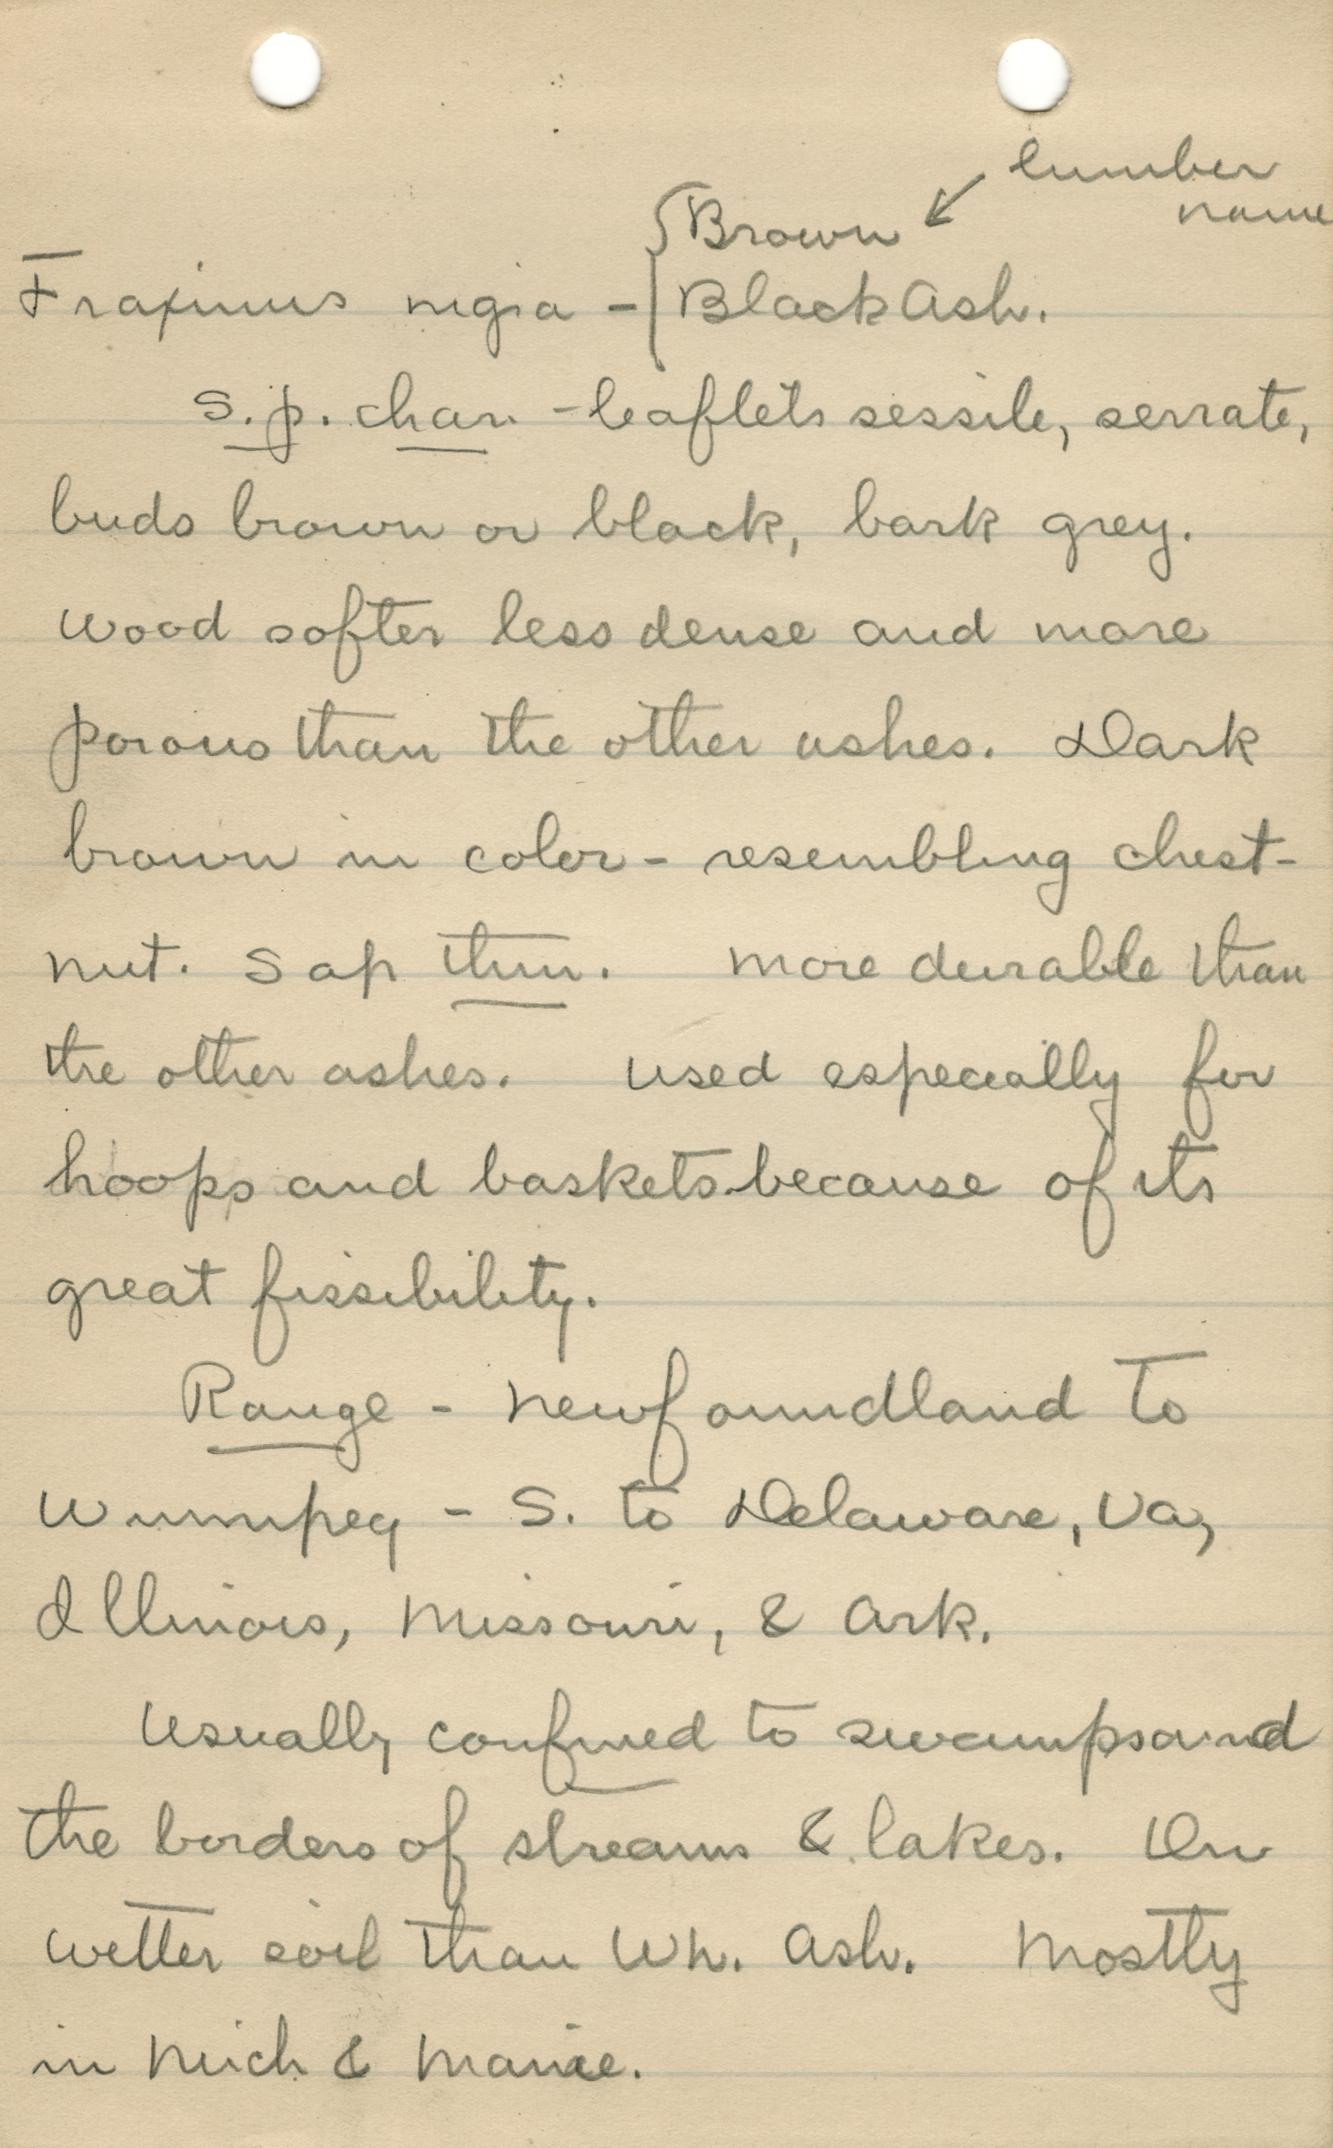 lumber
name
Brown
Fraxinus nigra - Black Ash.
s.p. char. - leaflets sessile, serrate,
buds brown or black, bark grey.
Wood softer less dense and more
porous than the other ashes. Dark
brown in color - resembling chest-
nut. Sap thin. More durable than
the other ashes. Used especially for
hoops and baskets because of its
great fissibility.
Range - Newfoundland to
Winnipeg - S. to Delaware, Va,
Illinois, Missouri, & Ark.
Usually confined to swamps and
the borders of streams & lakes. On
wetter soil than Wh. Ash. Mostly
in Mich & Maine.